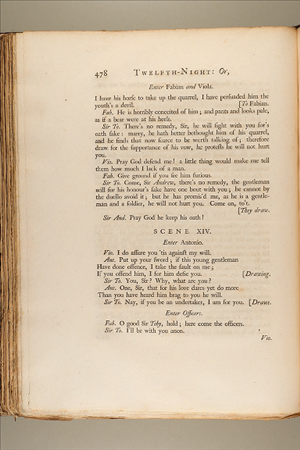 478 TWELFTH-NIGHT: Or,
Enter Fabian and Viola.
I have his horse to take up the quarrel, I have persuaded him the
youth's a devil. [To Fabian.
Fab. He is horribly conceited of him; and pants and looks pale,
as if a bear were at his heels.
Sir To. There's no remedy, Sir, he will fight with you for's
oath sake: marry, he hath better bethought him of his quarrel,
and he finds that now scarce to be worth talking of; therefore
draw for the supportance of his vow, he protests he will not hurt
you.
Vio. Pray God defend me! a little thing would make me tell
them how much I lack of a man.
Fab. Give ground if you see him furious.
Sir To. Come, Sir Andrew, there's no remedy, the gentleman
will for his honour's sake have one bout with you; he cannot by
the duello avoid it; but he has promis'd me, as he is a gentle-
man and a soldier, he will not hurt you. Come on, to't.
[They draw.
Sir And. Pray God he keep his oath!
SCENE XIV.
Enter Antonio.
Vio. I do assure you 'tis against my will.
Ant. Put up your sword; if this young gentleman
Have done offence, I take the fault on me;
If you offend him, I for him defie you. [Drawing.
Sir To. You, Sir? Why, what are you?
Ant. One, Sir, that for his love dares yet do more
Than you have heard him brag to you he will.
Sir To. Nay, if you be an undertaker, I am for you. [Draws.
Enter Officers.
Fab. O good Sir Toby, hold; here come the officers.
Sir To. I'll be with you anon.
Vio.